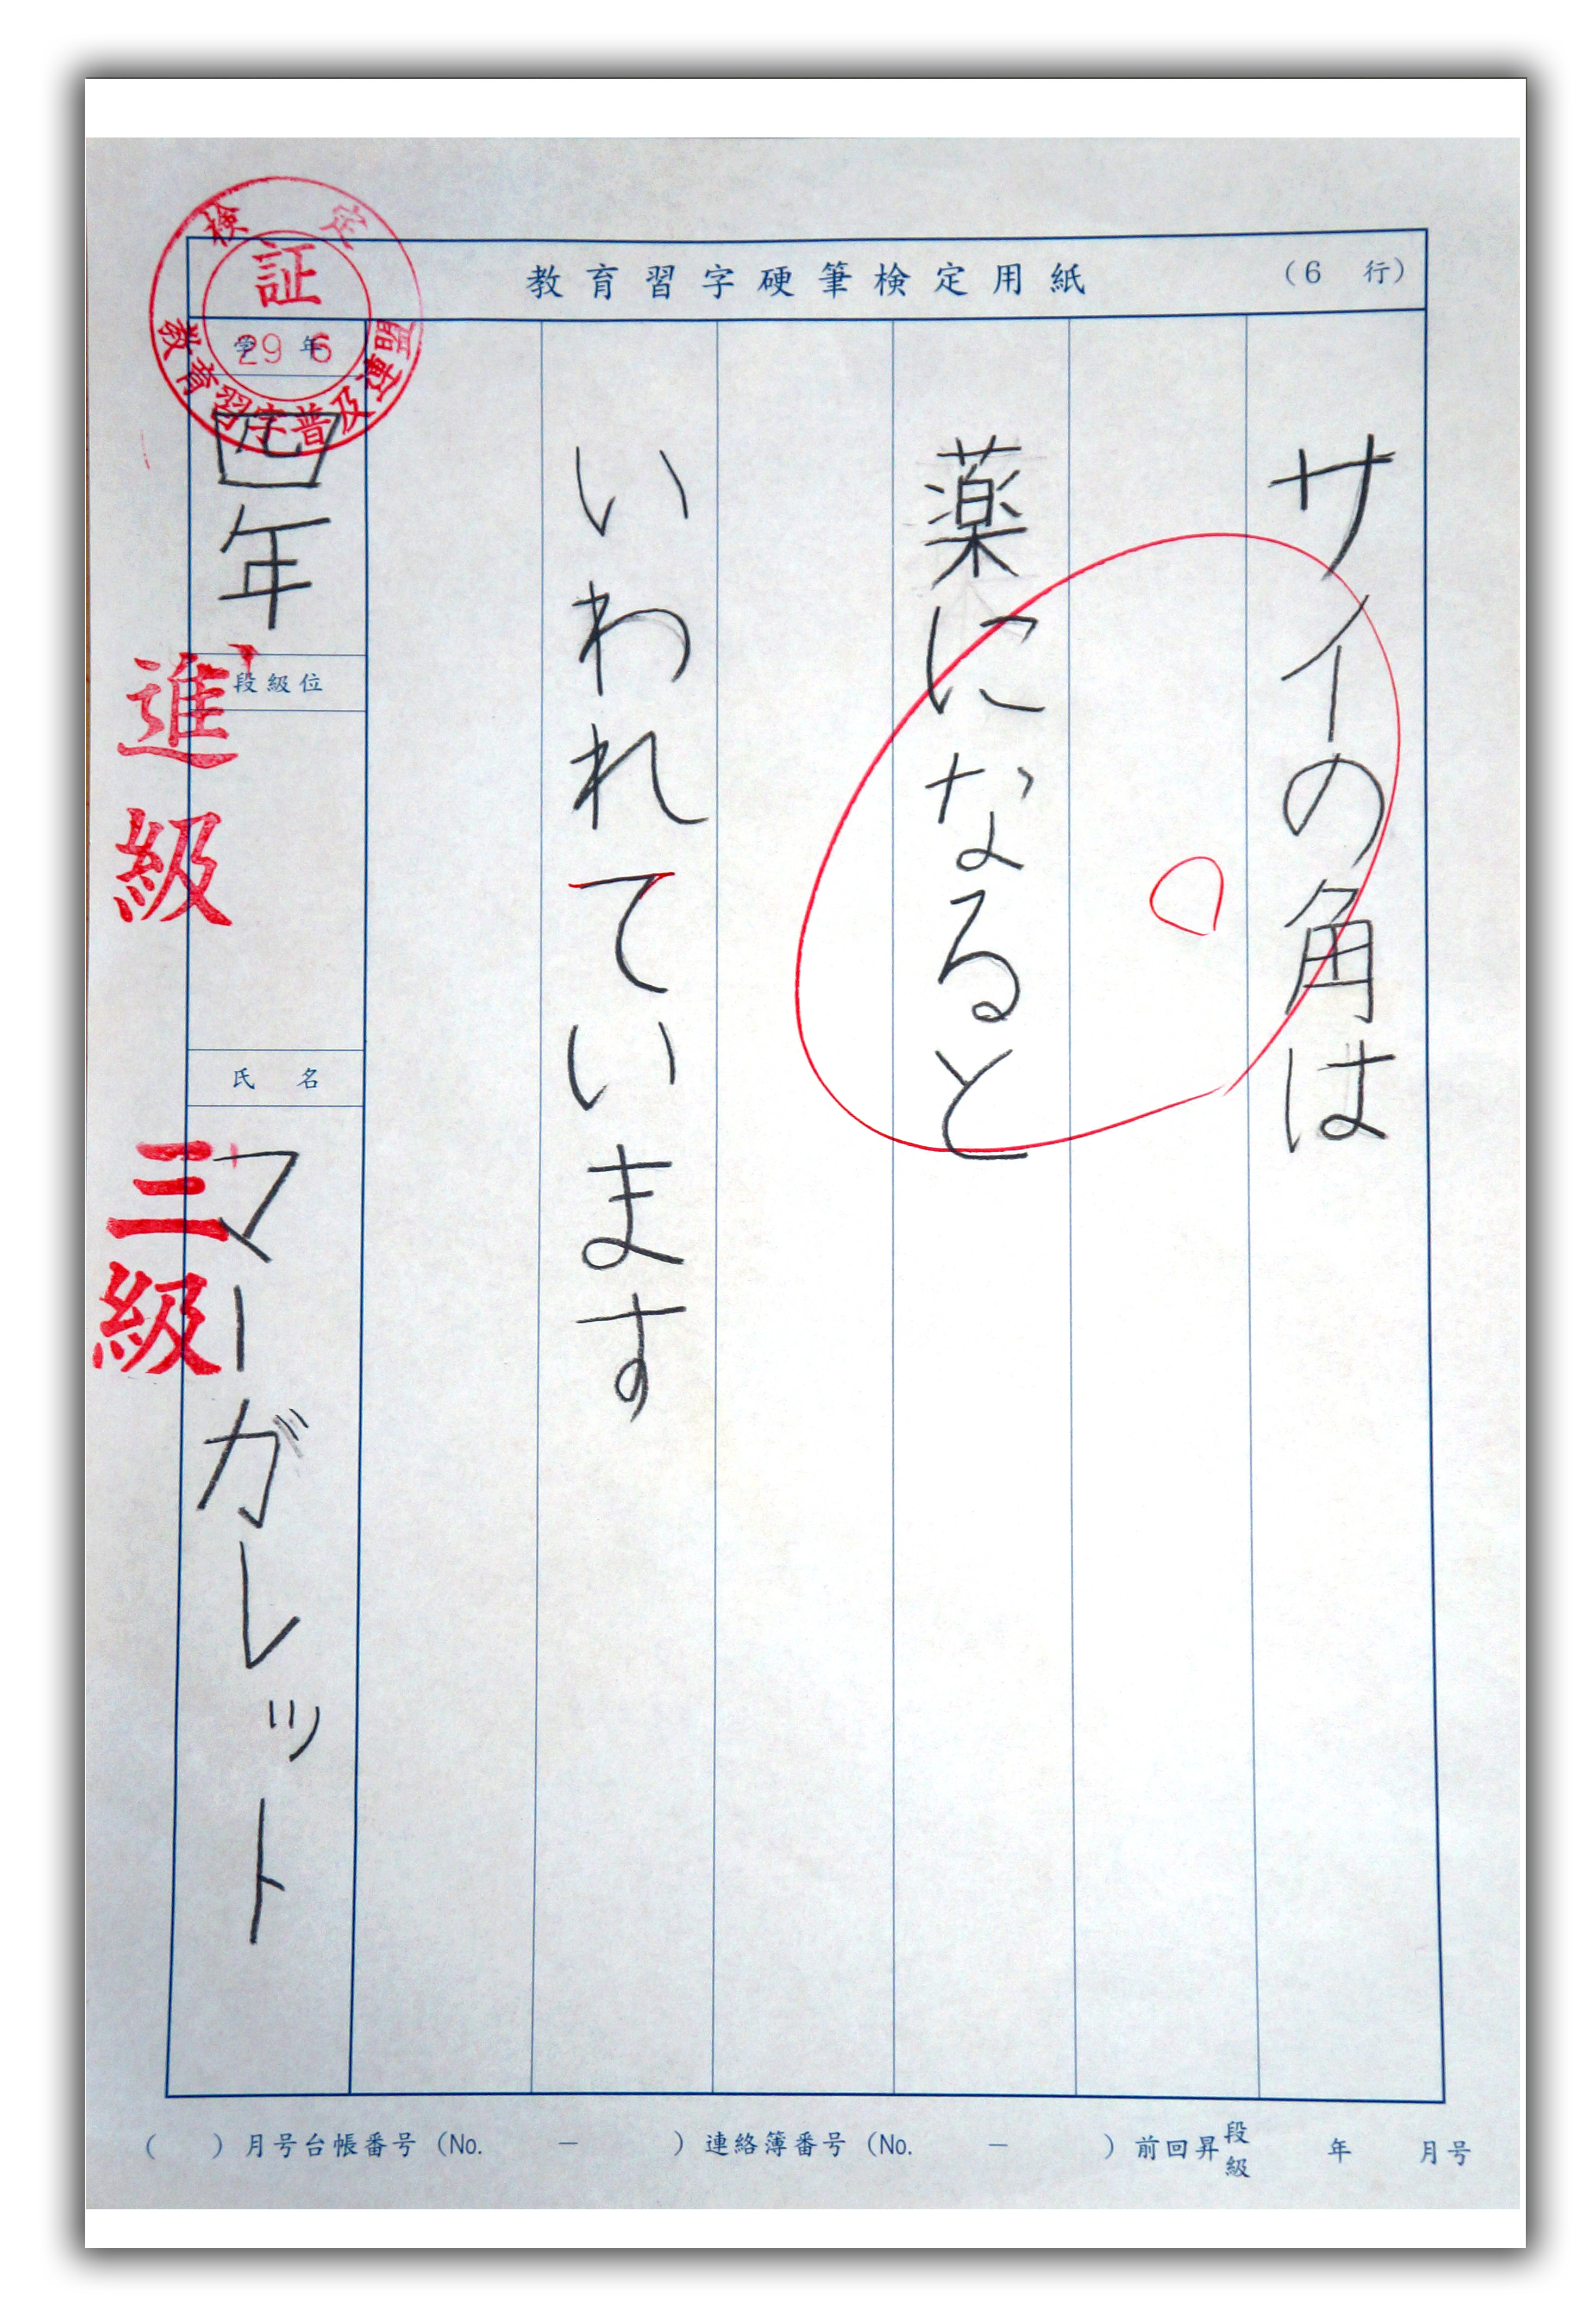 教育習字硬筆検定用紙
(6 行)
サイの角は
薬になると
いわれています
検定
証
29 6
教育習字普及連盟
学年
四年
段級位
進級
氏名
三級
マーガレット
( )月号台帳番号(No. － )連絡簿番号(No. － )前回昇段級 年 月号